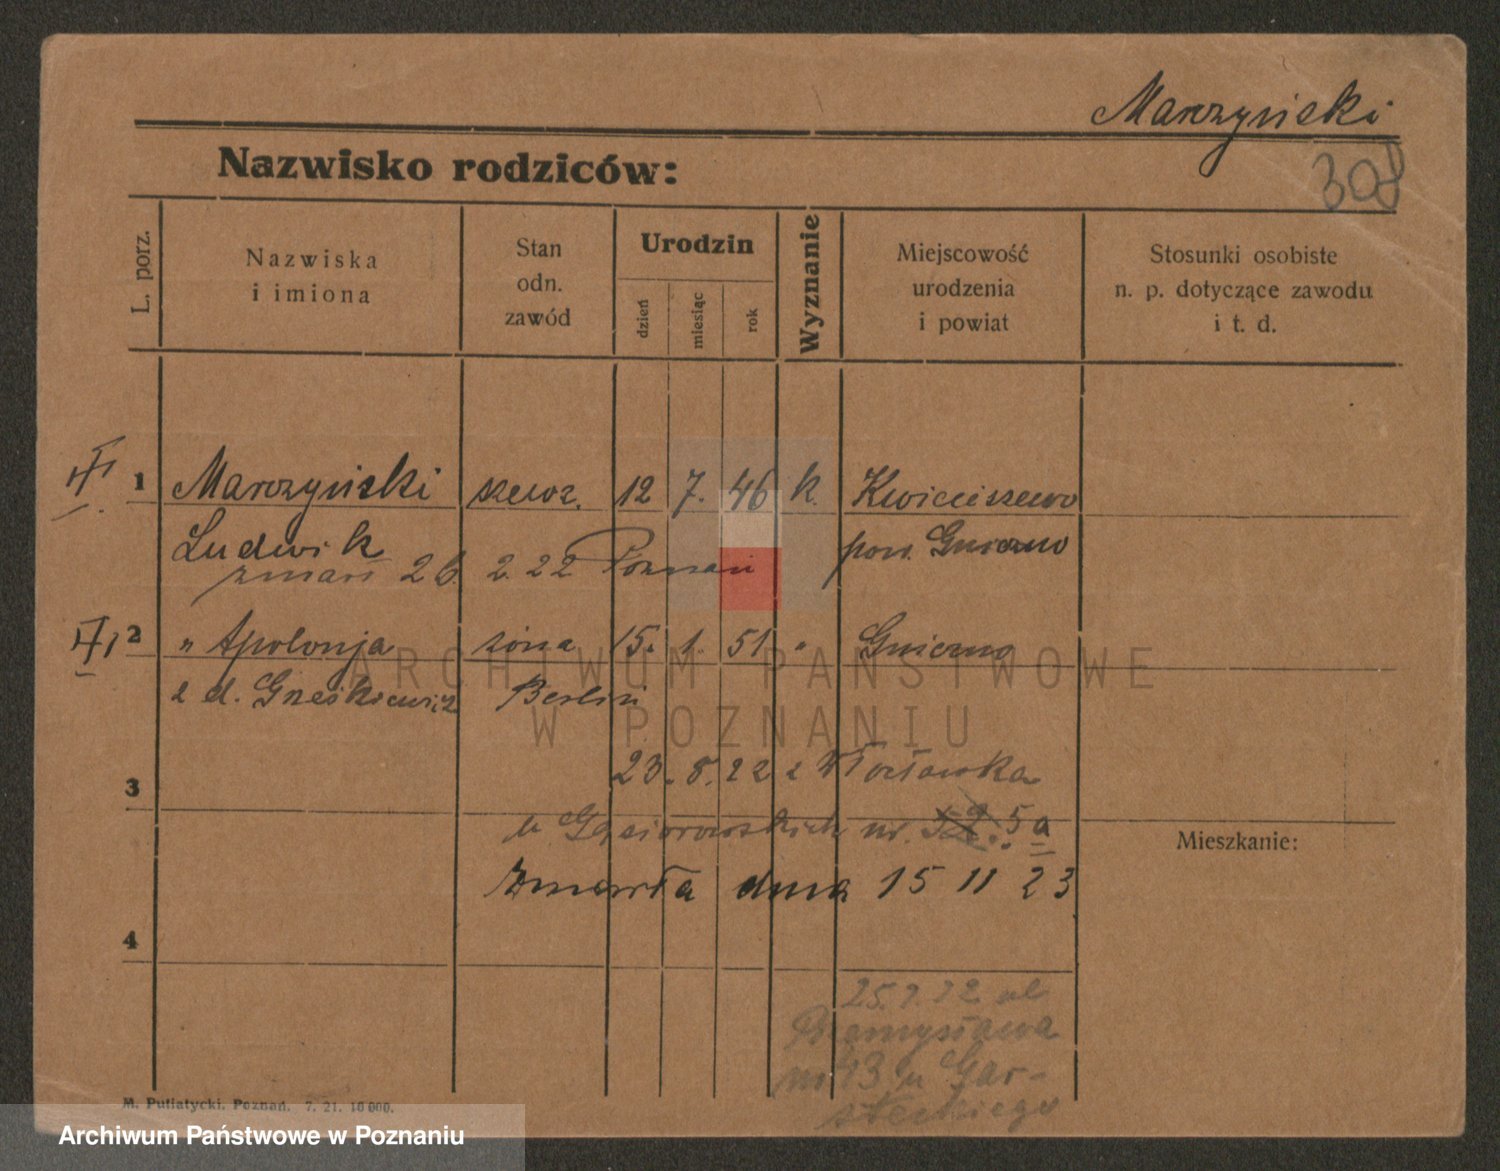 Marczyński
308
Nazwisko rodziców:
L. porz.
Nazwiska
i imiona
Stan
odn.
zawód
Urodzin
dzień
miesiąc
rok
Wyznanie
Miejscowość
urodzenia
i powiat
Stosunki osobiste
n. p. dotyczące zawodu
i t. d.
1 Marczyński szewc. 12 7. 46 k. Kwieciszewo
Ludwik pow. Gniezno
zmarł 26. 2. 22 Poznań
2 " Apolonja żona 15. 1. 51 " Gniezno
z d. Berlin
ARCHIWUM PAŃSTWOWE
W POZNANIU
3 23. 8. 22 z Włocławka
u Gąsiorowskich nr. 5a
Mieszkanie:
zmarła dnia 15 11 23
4
25. 22 ul
Przemysława
nr 43 u Gar-
steckiego
M. Putiatycki. Poznań. 7. 21. 10 000.
Archiwum Państwowe w Poznaniu